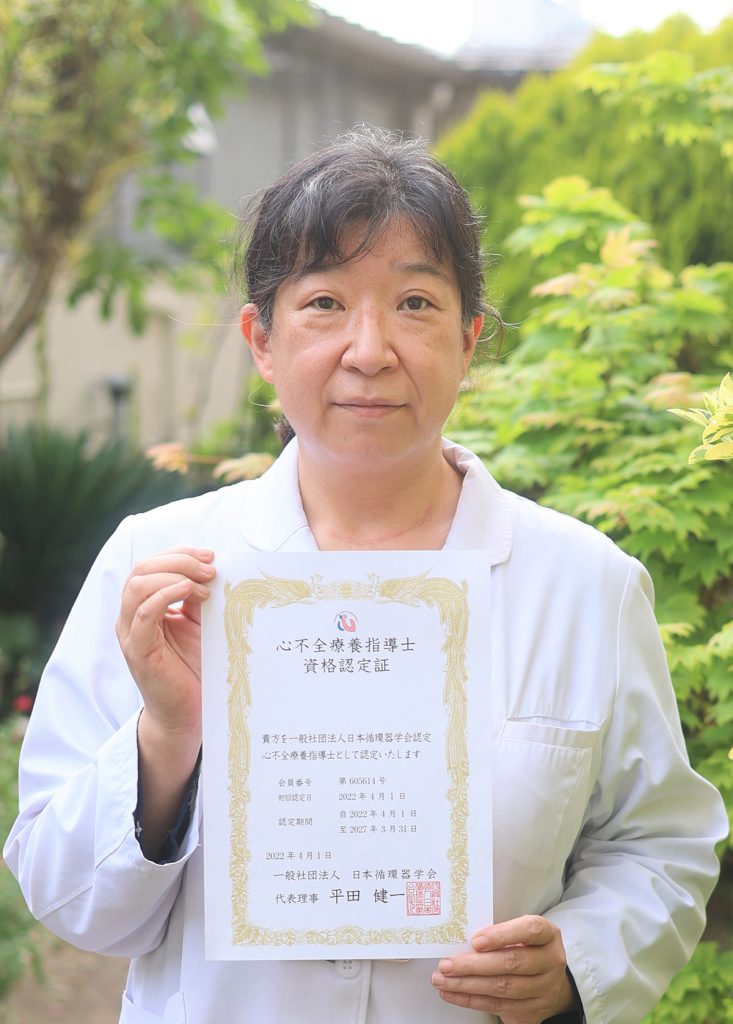 心不全療養指導士
資格認定証
貴方を一般社団法人日本循環器学会認定
心不全療養指導士として認定いたします
会員番号 第605614号
初回認定日 2022年4月1日
認定期間 自2022年4月1日
至2027年3月31日
2022年4月1日
一般社団法人 日本循環器学会
代表理事 平田 健一